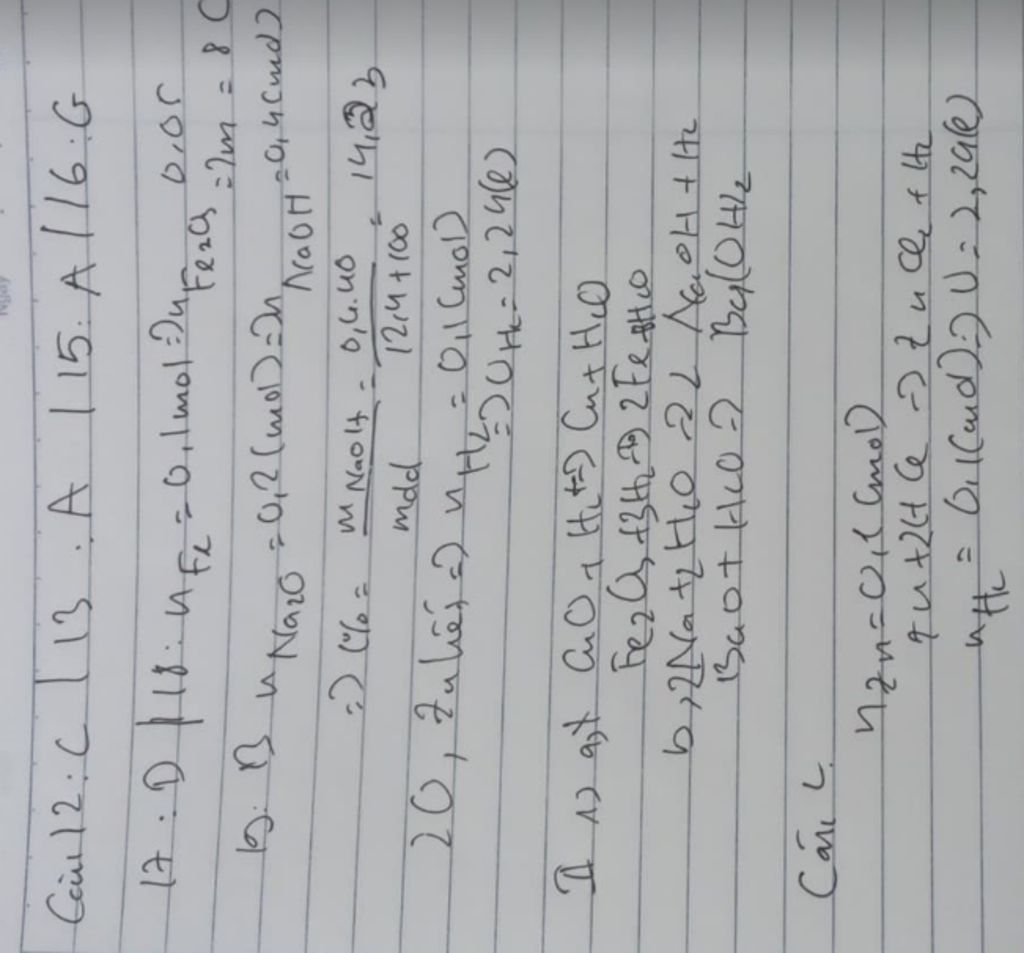 Câu 12: C | 13. A | 15: A | 16: G
17. D | 18: nFe = 0,1mol => nFe2O3 0,05 => m = 8 C
19: B nNa2O = 0,2 (mol) => nNaOH = 0,4 (mol)
=> C% = mNaOH / mdd = 0,4.40 / 12,4+100 = 14,23
20, Zn hết => nH2 = 0,1 (mol)
=> VH2 = 2,24(l)
II 1) a, CuO + H2 => Cu + H2O
Fe2O3 + 3H2 => 2Fe + 3H2O
b, 2Na + 2H2O => 2NaOH + H2
BaO + H2O => Ba(OH)2
Câu 2
nZn = 0,1 (mol)
Zn + 2HCl => ZnCl2 + H2
nH2 = 0,1 (mol) => V = 2,24(l)